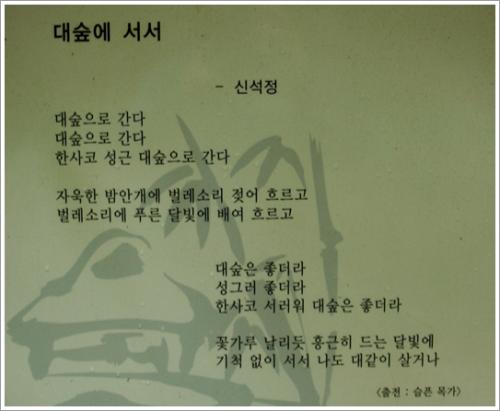 대숲에 서서
- 신석정
대숲으로 간다
대숲으로 간다
한사코 성근 대숲으로 간다
자욱한 밤안개에 벌레소리 젖어 흐르고
벌레소리에 푸른 달빛에 배여 흐르고
대숲은 좋더라
성그러 좋더라
한사코 서러워 대숲은 좋더라
꽃가루 날리듯 흥근히 드는 달빛에
기척 없이 서서 나도 대같이 살거나
<출전 : 슬픈 목가>